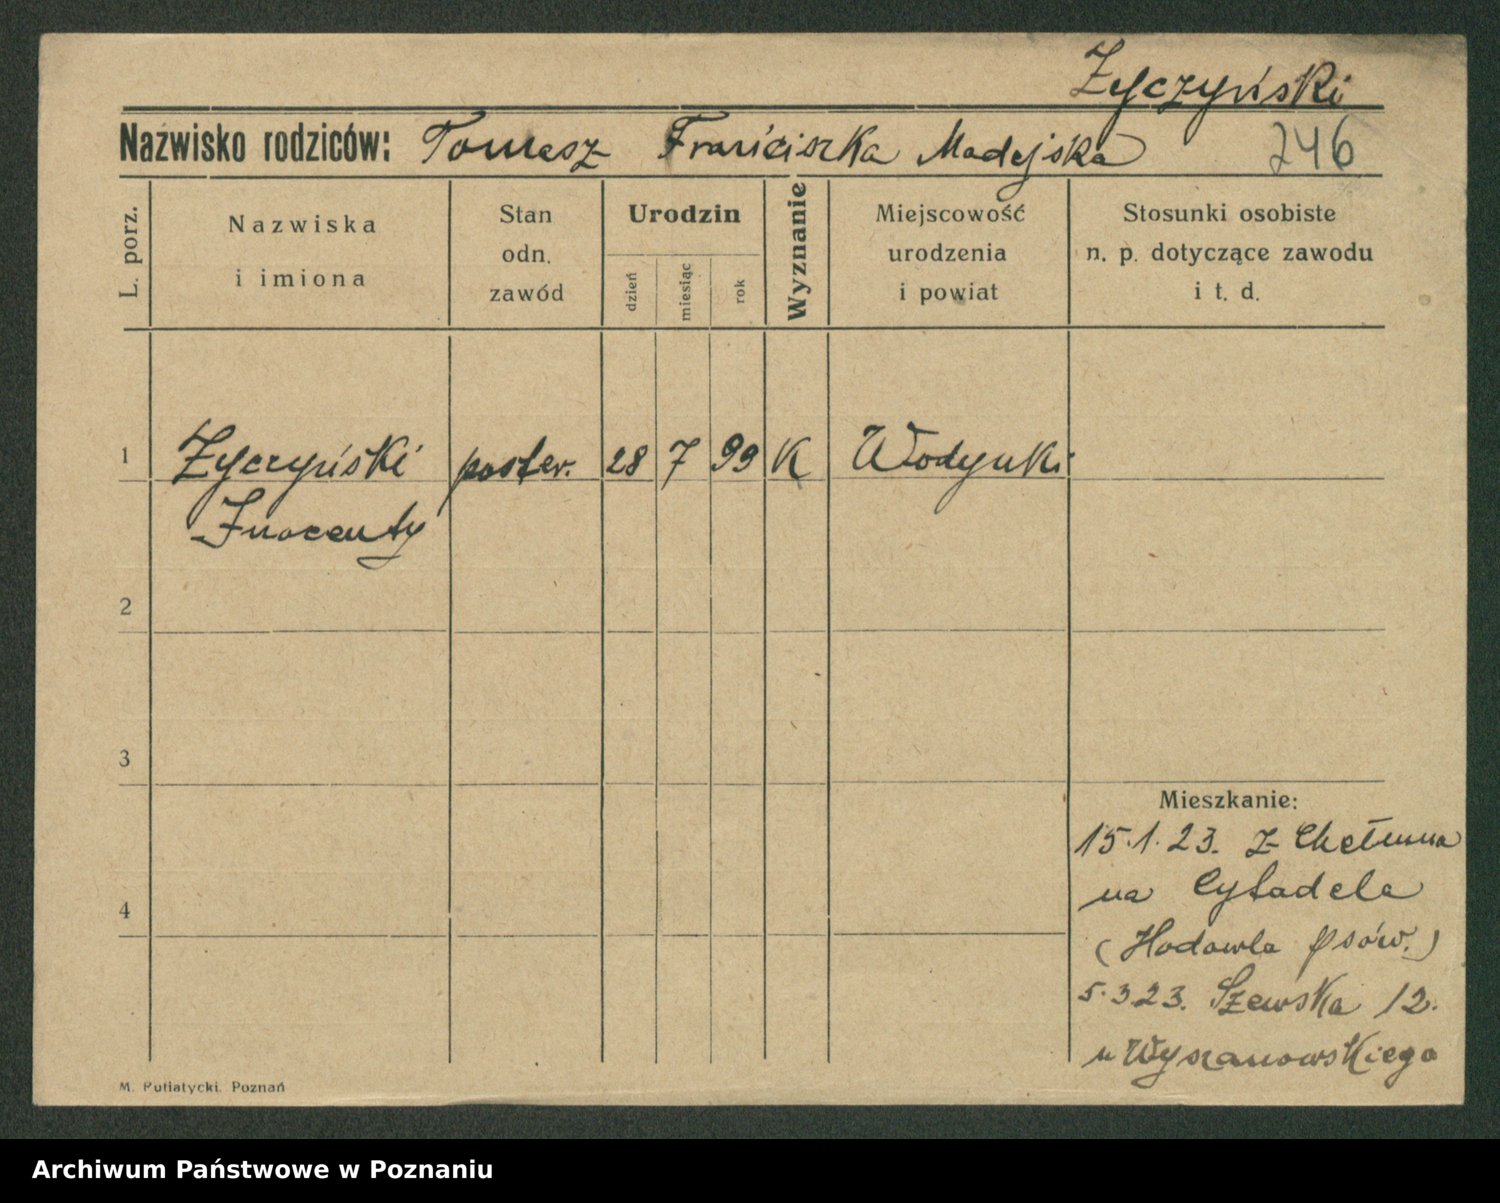 Życzyński
Nazwisko rodziców: Tomasz Franciszka Madejska 246
L. porz.
Nazwiska
i imiona
Stan
odn.
zawód
Urodzin
dzień
miesiąc
rok
Wyznanie
Miejscowość
urodzenia
i powiat
Stosunki osobiste
n. p. dotyczące zawodu
i t. d.
1 Życzyński poster. 28 7 99 K Wodynki
Inocenty
2
3
Mieszkanie:
15.1.23. z Chełmna
na Cytadela
4
(Hodowla psów.)
5.3.23. Szewska 12.
u Wyszanowskiego
M. Putiatycki. Poznań
Archiwum Państwowe w Poznaniu